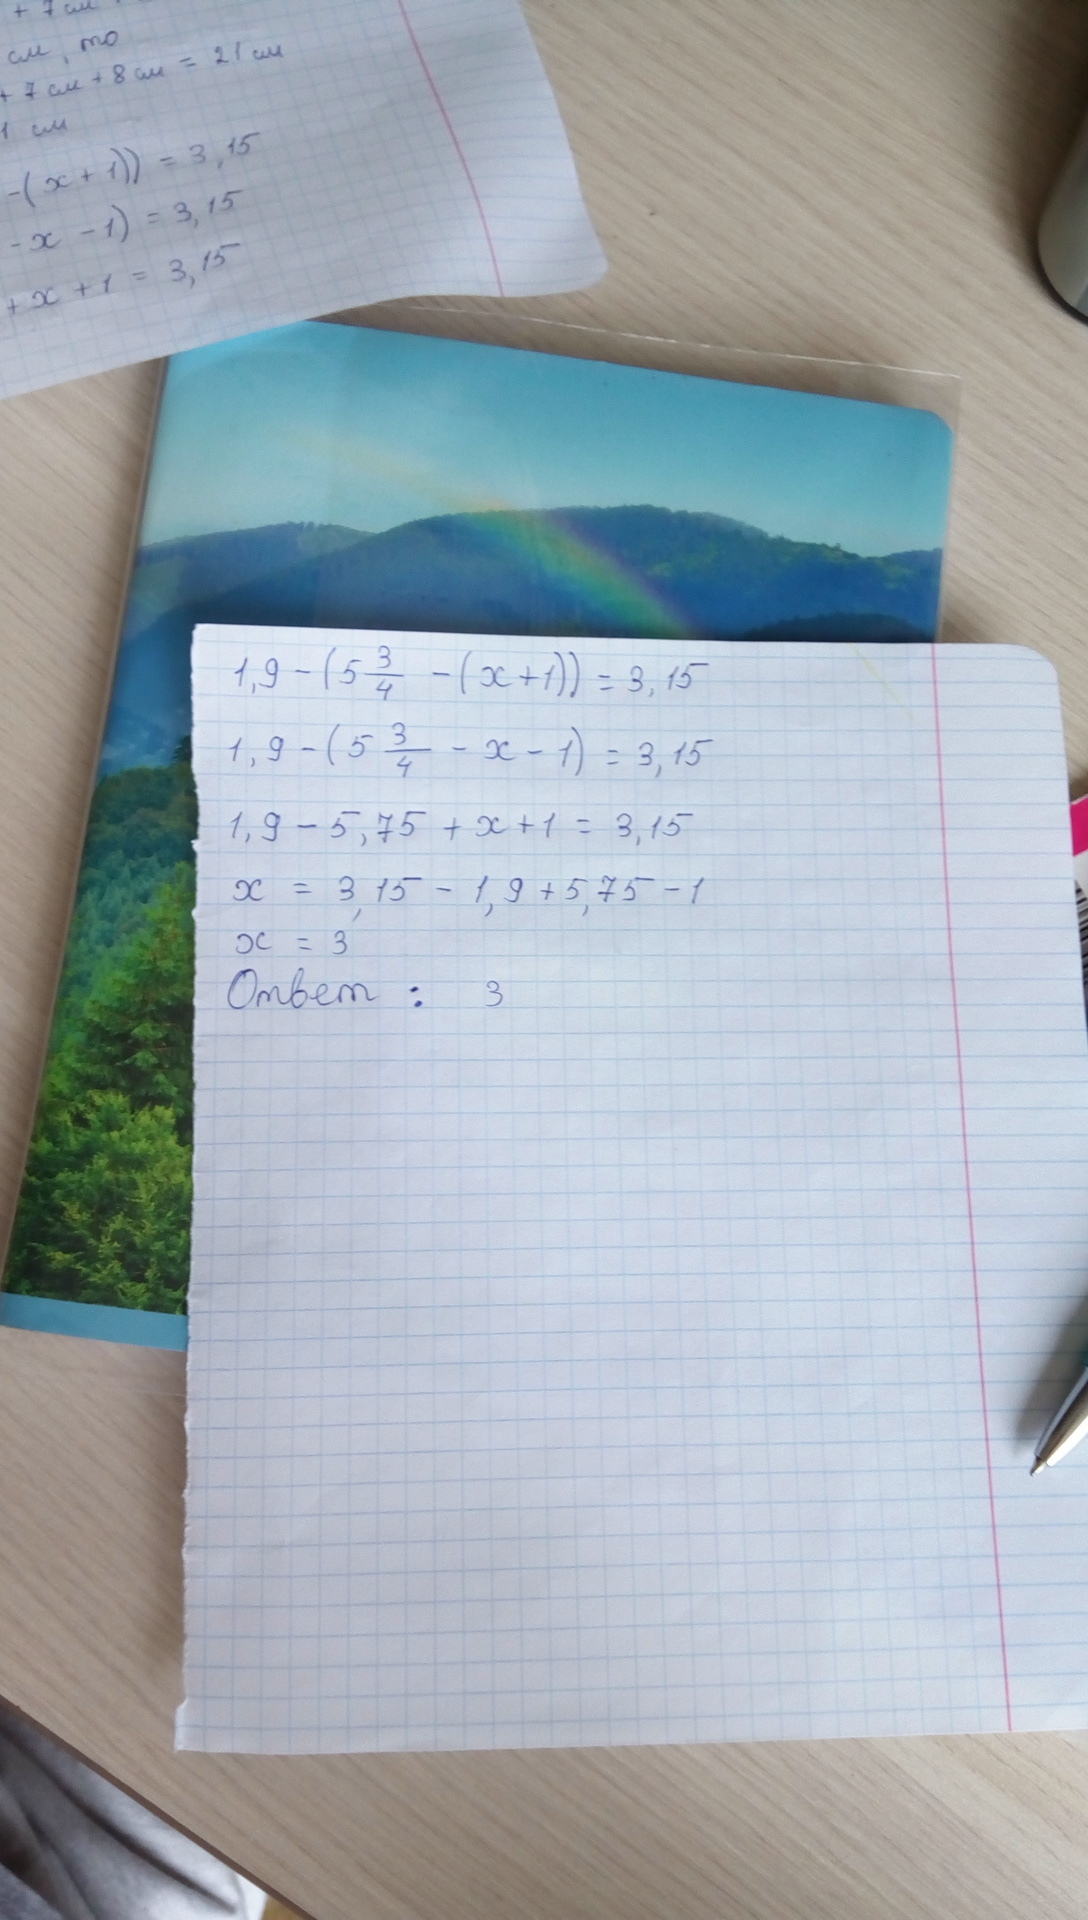 + 7 см
см, то
+ 7 см + 8 см = 21 см
1 см
-(x+1)) = 3,15
- x - 1) = 3,15
+ x + 1 = 3,15
1,9 - (5 3/4 - (x+1)) = 3,15
1,9 - (5 3/4 - x - 1) = 3,15
1,9 - 5,75 + x + 1 = 3,15
x = 3,15 - 1,9 + 5,75 - 1
x = 3
Ответ : 3